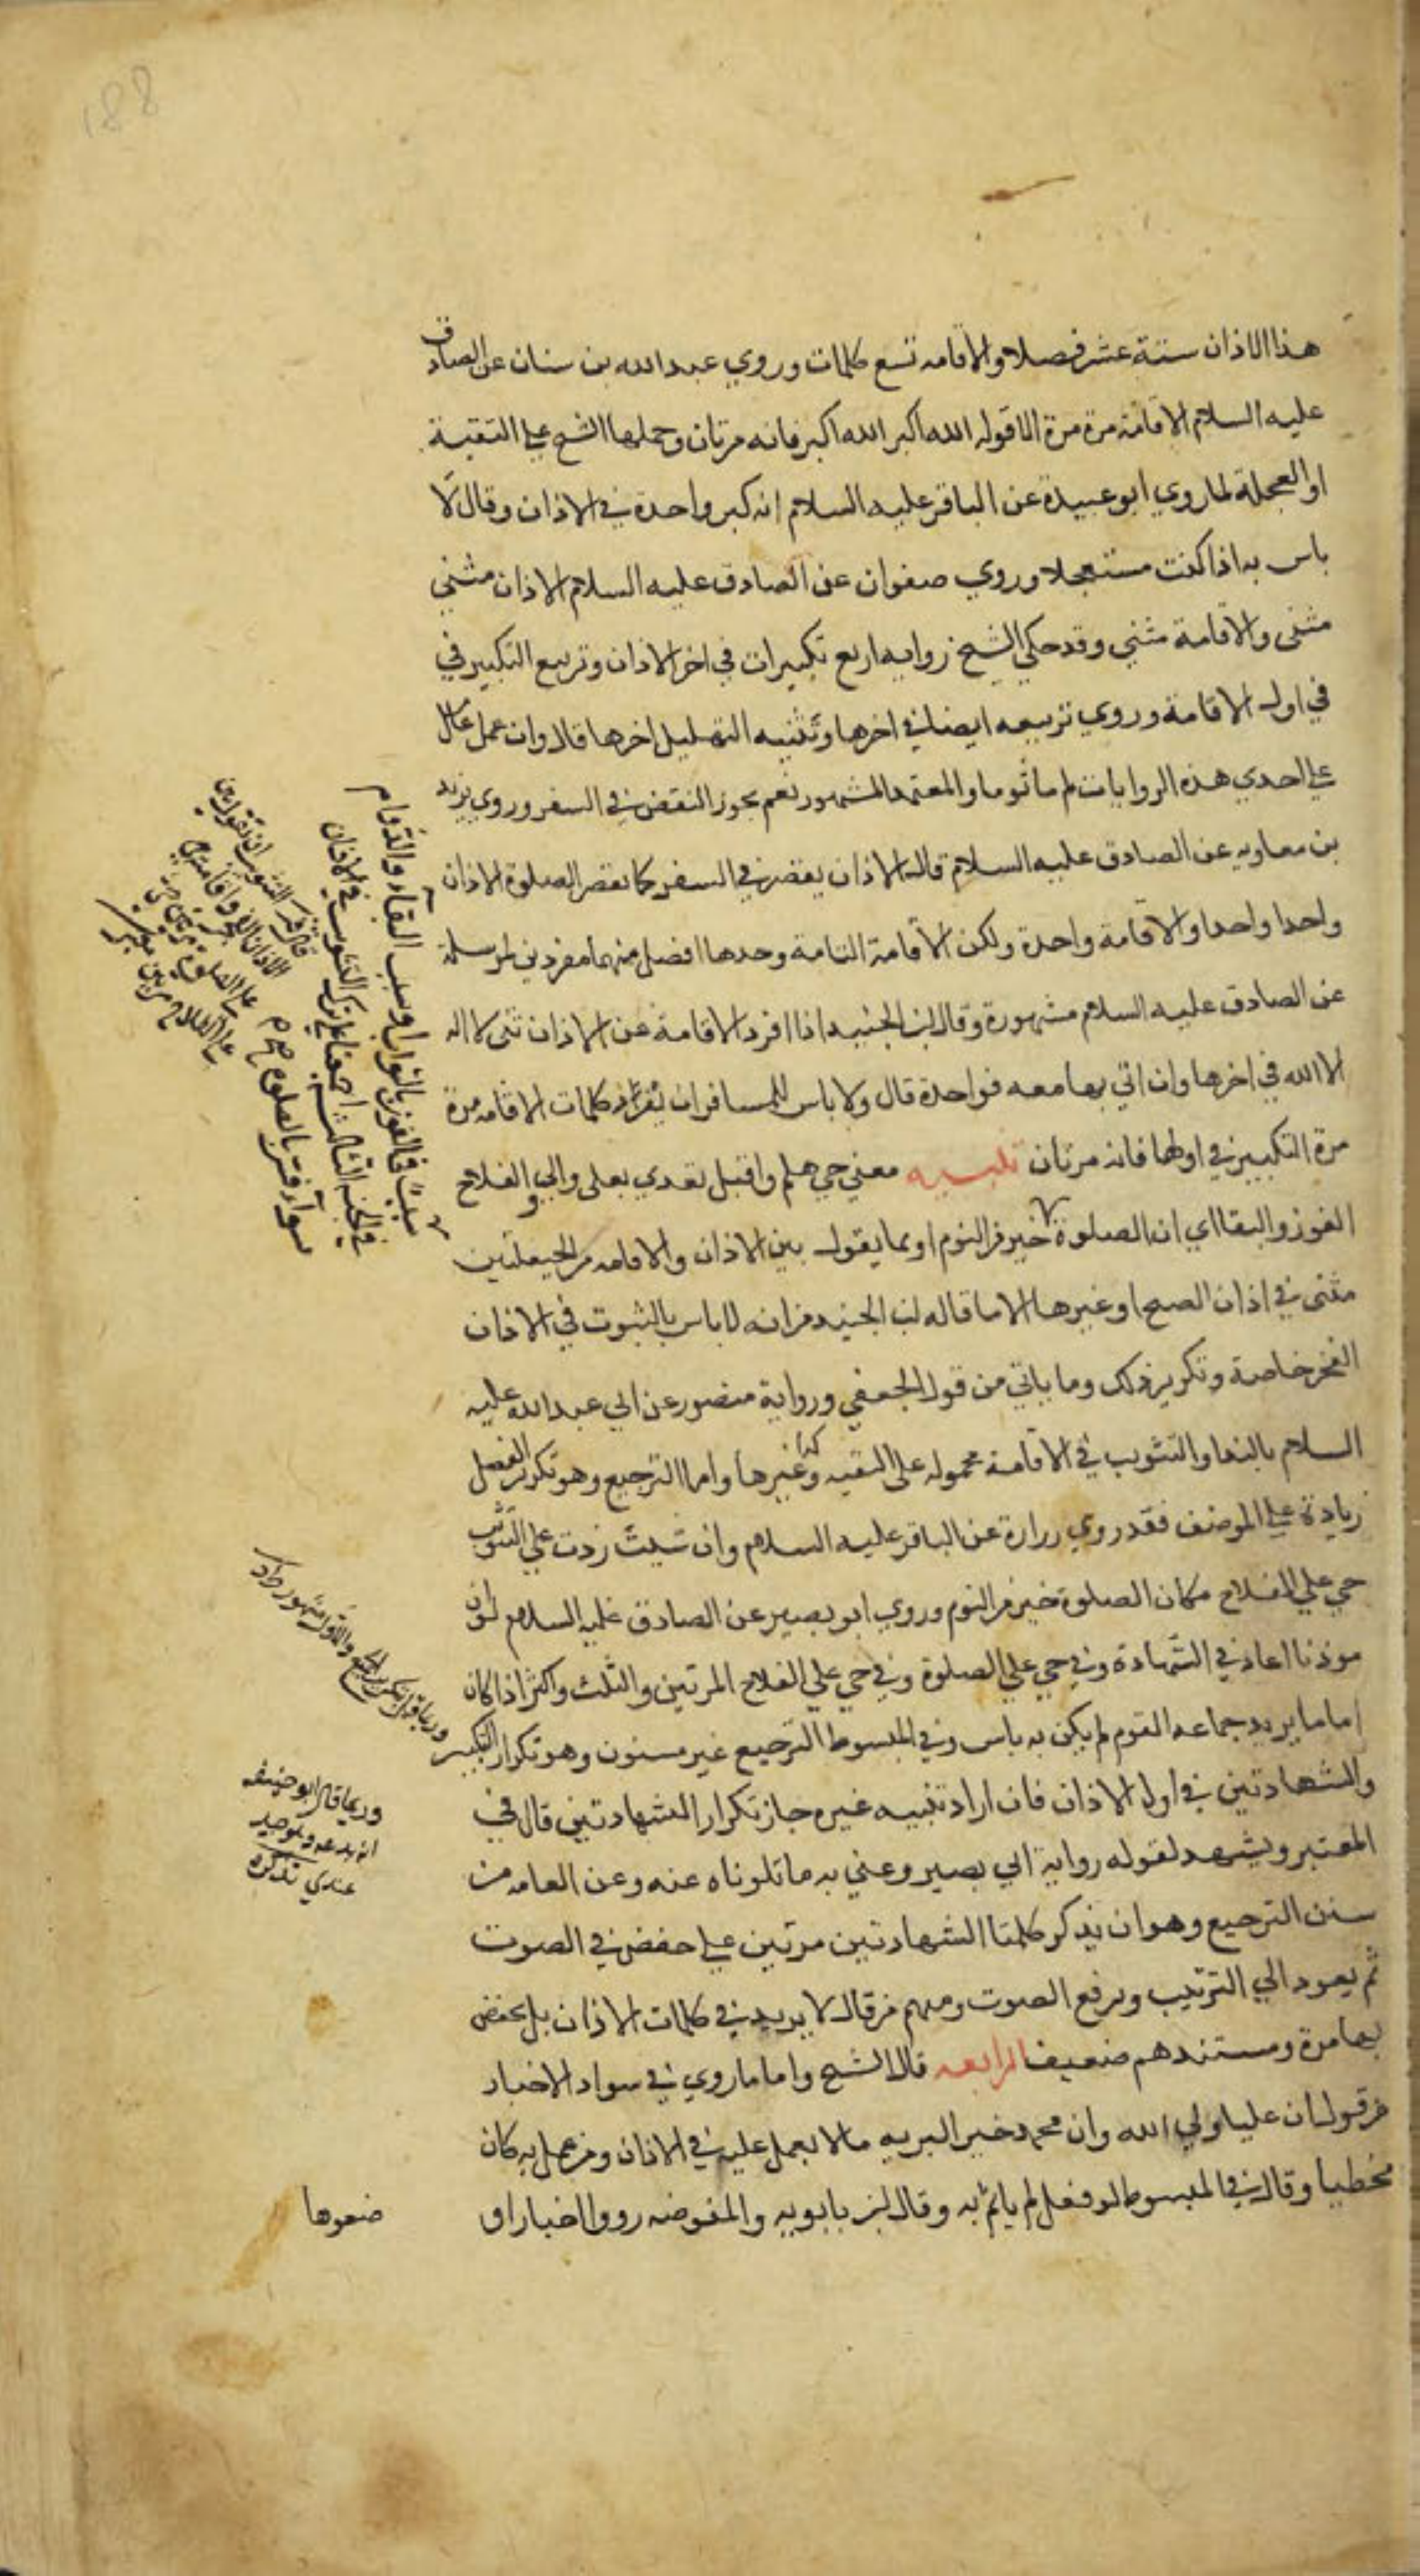 188
هذا الاذان ستة عشر فصلا والاقامه تسع كلمات وروي عبد الله بن سنان عن الصادق
عليه السلام الاقامة مرة مرة الا قوله الله اكبر الله اكبر فانه مرتان وحملها الشيخ علي التقية
او العجلة لما روي ابو عبيدة عن الباقر عليه السلام انه كبر واحدة في الاذان وقال لا
باس به اذا كنت مستعجلا وروي صفوان عن الصادق عليه السلام الاذان مثني
مثنى والاقامة مثني وقد حكي الشيخ روايه اربع تكبيرات في اخر الاذان وتربيع التكبير في
في اول الاقامة وروي تربيعه ايضا في اخرها وتثنيه التهليل اخرها قال وان عمل عامل
علي احدي هذه الروايات لم ماثوما والمعتمد المشهور نعم يجوز النقص في السفر وروي بريد
بن معاويه عن الصادق عليه السلام قال الاذان يقصر في السفر كما يقصر الصلوة الاذان
واحدا واحدا والاقامة واحدة ولكن الاقامة التامة وحدها افضل منهما مفردين لمرسلة
عن الصادق عليه السلام مشهورة وقال ابن الجنيد اذا افرد الاقامة عن الاذان ثنى لا اله
الا الله في اخرها وان اتي بها معه فواحدة قال ولا باس للمسافر ان يفرد كلمات الاقامه مرة
مرة التكبير في اولها فانه مرتان تنبيه معني حي هلم واقبل تعدي بعلى والي والفلاح
الفوز والبقا اي ان الصلوة خير من النوم او بما يقول بين الاذان والاقامه من الحيعلتين
مثنى في اذان الصبح او غيرها الا ما قاله ابن الجنيد من انه لا باس بالثبوت في الاذان
الفجر خاصة وتكرير ذلك وما ياتي من قول الجعفي ورواية منصور عن ابي عبد الله عليه
السلام بالندا والتثويب في الاقامة محموله على التقيه كذا وغيرها واما الترجيع وهو تكرير الفصل
زيادة علي الموضف فقد روي زرارة عن الباقر عليه السلام وان شيت زدت علي التثويب
حي علي الفلاح مكان الصلوة خير من النوم وروي ابو بصير عن الصادق عليه السلام لو ان
موذنا اعاد في الشهادة وفي حي علي الصلوة وفي حي علي الفلاح المرتين والثلث واكثر اذا كان
اماما يريد جماعه القوم لم يكن به باس وفي المبسوط الترجيع غير مسنون وهو تكرار التكبير
والشهادتين في اول الاذان فان اراد تنبيه غيره جاز تكرار الشهادتين قال في
المعتبر ويشهد لقوله رواية ابي بصير وعني به ما تلوناه عنه وعن العامه من
سنن الترجيع وهو ان يذكر كلمتا الشهادتين مرتين علي خفض في الصوت
ثم يعود الي الترتيب ويرفع الصوت ومنهم من قال لا يريد في كلمات الاذان بل يخفض
بها مرة ومستندهم ضعيف الرابعه قال الشيخ واما ما روي في سواد الاخبار
من قول ان عليا ولي الله وان محمد خير البريه مما لا يعمل عليه في الاذان ومن عمل به كان
مخطيا وقال في المبسوط لو فعل لم ياثم به وقال ابن بابويه والمفوضه رووا اخبارا و
ضعوها
البقاء والدوام
سبب فالفوز بالثواب وسبب
في الجنه
سواء
وربما قال ابو حنيفه
انه بدعه وهو جيد
عندي تذكره